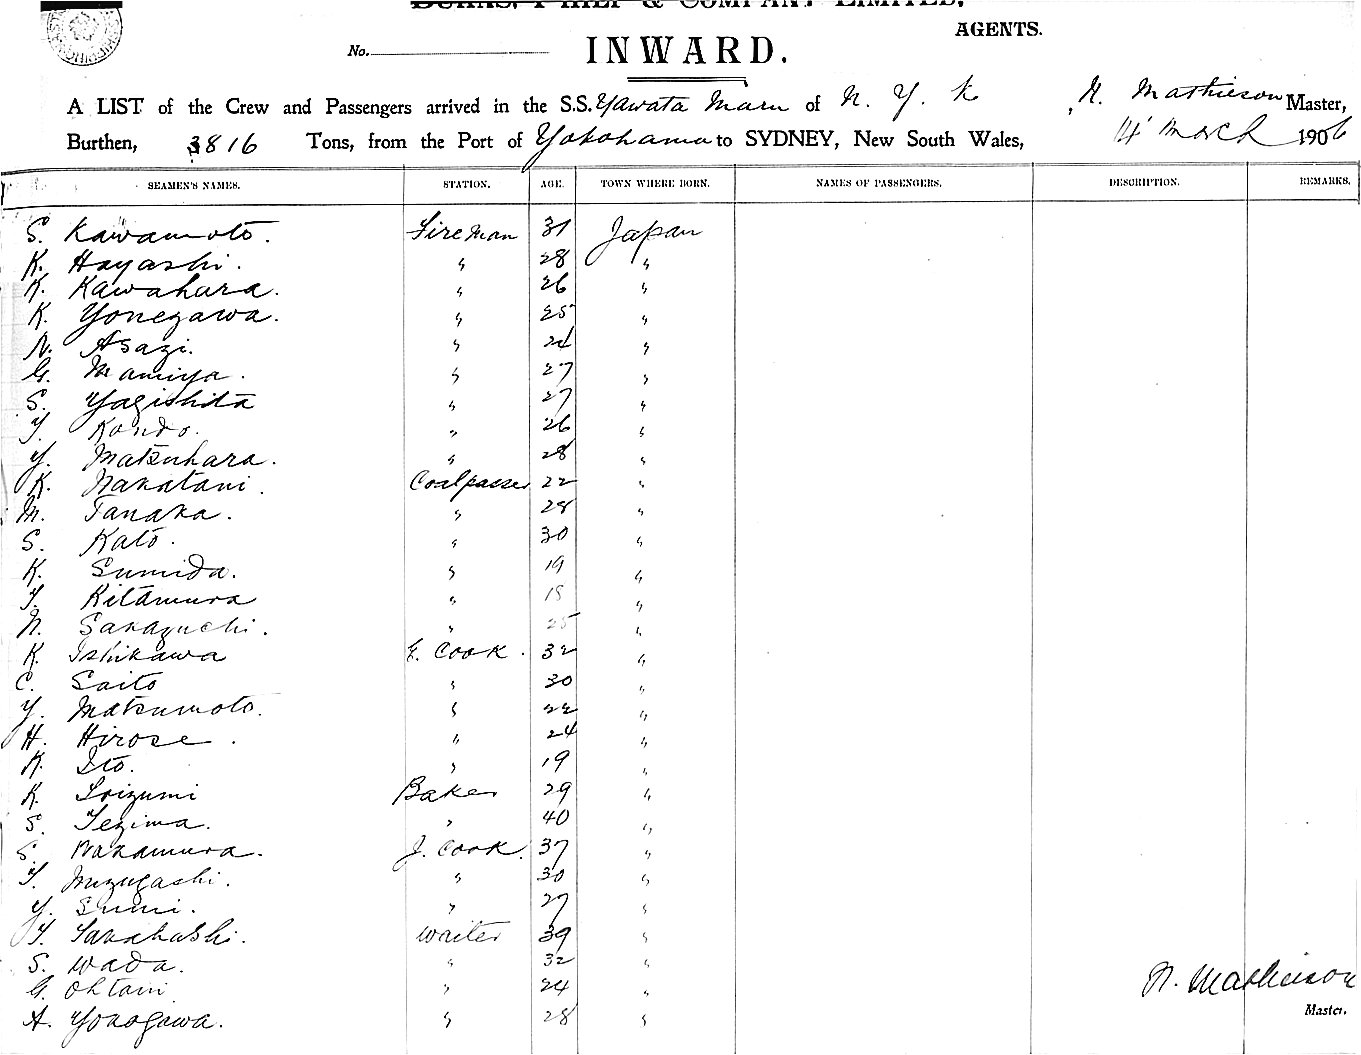 BURNS, PHILP & COMPANY LIMITED,
AGENTS.
No.
INWARD.
A LIST of the Crew and Passengers arrived in the S.S. Yawata Maru of N. Y. K N. Mathieson Master,
Burthen, 3816 Tons, from the Port of Yokohama to SYDNEY, New South Wales, 14 March 1906
SEAMEN'S NAMES. STATION. AGE. TOWN WHERE BORN. NAMES OF PASSENGERS. DESCRIPTION. REMARKS.
S. Kawamoto. Fireman 31 Japan
K. Hayashi. " 28 "
K. Kawahara. " 26 "
K. Yonezawa. " 25 "
N. Asazi. " 24 "
G. Mamiya. " 27 "
S. Yagishita " 27 "
T. Kondo. " 26 "
Y. Matsuhara. " 28 "
K. Nakatani. Coalpasser 22 "
M. Tanaka. " 28 "
S. Kato. " 30 "
K. Sumida. " 19 "
T. Kitamura " 18 "
N. Sakaguchi. " 25 "
K. Ishikawa E. Cook. 32 "
C. Saito " 30 "
Y. Matsumoto. " 22 "
H. Hirose. " 24 "
K. Ito. " 19 "
K. Soizumi Baker 29 "
S. Tezima. " 40 "
S. Nakamura. J. Cook. 37 "
T. Mizugashi. " 30 "
Y. Sumi. " 27 "
T. Takahashi. Waiter 39 "
S. Wada. " 32 "
G. Ohtani " 24 "
A. Yokogawa. " 28 "
N. Mathieson
Master.